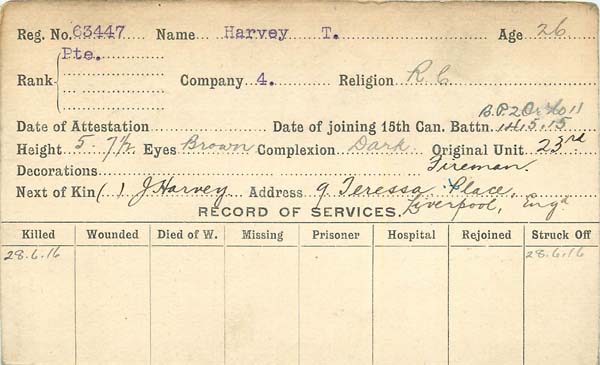 Reg. No. 63447 Name Harvey T. Age 26
Pte.
Rank Company 4. Religion R.C.
B.P.2
Date of Attestation Date of joining 15th Can. Battn. 14.5.15
Height 5.7½ Eyes Brown Complexion Dark Original Unit 23rd
Decorations Fireman.
Next of Kin ( ) J Harvey Address 9 Teressa Place,
RECORD OF SERVICES. Liverpool, Engd
Killed Wounded Died of W. Missing Prisoner Hospital Rejoined Struck Off
28.6.16 28.6.16